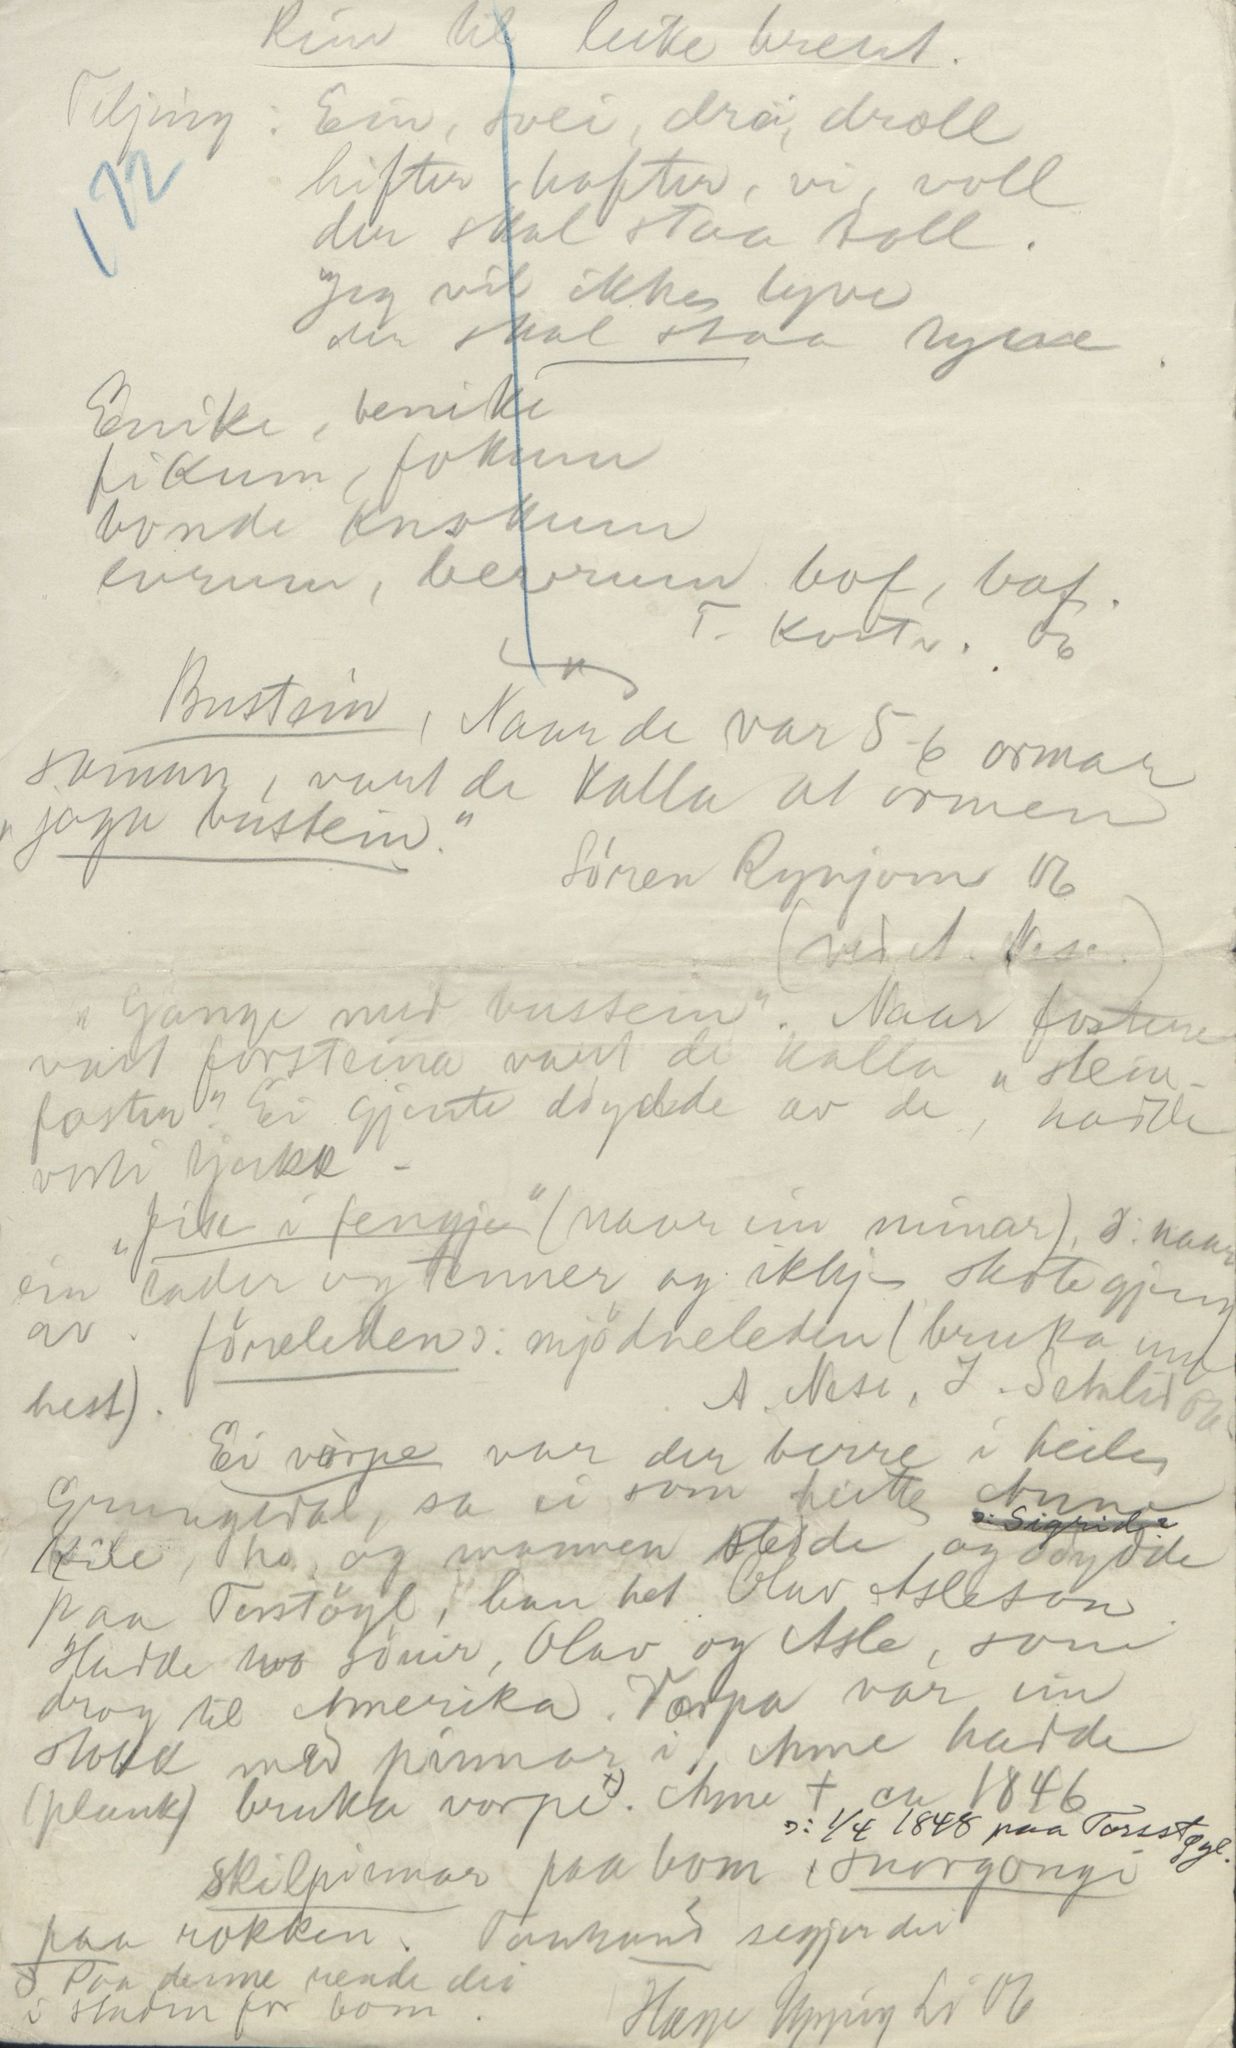 Rim til leike brent.
Teljing: Ein, svei, drai, droll
172
hifter, hafter, vi, voll
der skal staa toll.
Jeg vil ikke lyve
der skal staa tyve.
Enike, benike
fikum, fokum
bonde knokum
evrum, beverum bof, baf.
T. Kostv. 06
Bustein, Naar de var 5-6 ormar
saman, vart de kalla at ormen
"jaga bustein."
Sören Rynjom 06
(ved A. Nese.)
"Gange med bustein". Naar fostere
vart forsteina vart de kalla "stein-
foster". Ei gjente döydde av de, hadde
vori tjukk -
"fik i fengje" (naar ein minar), ɔ: naar
ein lader og tenner og ikkje skote gjeng
av. förreleden ɔ: mjödneleden (bruka um
hest). A. Nese, J. 06
Ei vörpe var der berre i heile
Grungedal, sa ei som heitte Anne
ɔ: Sigrid
Kile, ho og mannen stedde og döydde
paa Torstöyl, han het Olav Asleson.
Hadde two söner, Olav og Asle, som
drog til Amerika. Vorpa var ein
stokk med pinnar i, Anne hadde
(plank) bruka vorpe x). Anne † ca 1846
ɔ: 1/4 1848 paa Torsstøyl.
skilpinnar paa bom, snorgongi
paa rokken. segjer dei
x) Paa denne rende dei
i staden for bom.
Hæge Li 06